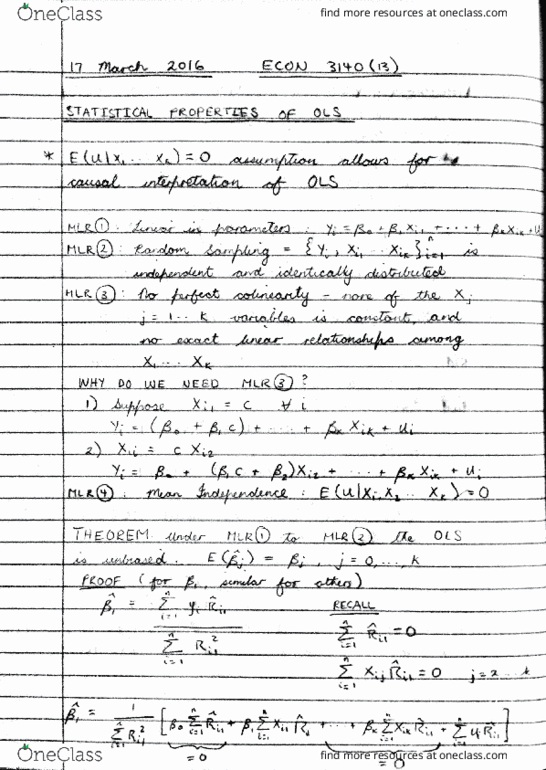 OneClass
find more resources at oneclass.com
17 March 2016 ECON 3140 (13)
STATISTICAL PROPERTIES OF OLS
* E(U|X₁ ... Xₖ) = 0 assumption allows for
causal interpretation of OLS
MLR①: Linear is parameters : Yᵢ = β₀ + β₁ Xᵢ₁ + ... + βₖ Xᵢₖ + Uᵢ
MLR②: Random Sampling = {Yᵢ, Xᵢ₁ ... Xᵢₖ}ⁿᵢ₌₁ is
independent and identically distributed
MLR③: No perfect colinearity - none of the Xⱼ
j = 1 ... k variables is constant, and
no exact linear relationships among
X₁ ... Xₖ
WHY DO WE NEED MLR③?
1) Suppose Xᵢ₁ = c ∀ i
Yᵢ = (β₀ + β₁ c) + ... + βₖ Xᵢₖ + Uᵢ
2) Xᵢ₁ = c Xᵢ₂
Yᵢ = β₀ + (β₁ c + β₂) Xᵢ₂ + ... + βₖ Xᵢₖ + Uᵢ
MLR④: Mean Independence : E(U|X₁ X₂ ... Xₖ) = 0
THEOREM under MLR① to MLR② the OLS
is unbiased. E(β̂ⱼ) = βⱼ, j = 0, ..., k
PROOF (for β₁, similar for others)
β̂₁ = Σⁿᵢ₌₁ yᵢ R̂ᵢ₁ / Σⁿᵢ₌₁ Rᵢ₁²
RECALL
Σⁿᵢ₌₁ R̂ᵢ₁ = 0
Σⁿᵢ₌₁ Xᵢⱼ R̂ᵢ₁ = 0 j = 2 ...
β̂₁ = 1 / Σⁿᵢ₌₁ Rᵢ₁² [β₀ Σⁿᵢ₌₁ R̂ᵢ₁ + β₁ Σⁿᵢ₌₁ Xᵢ₁ R̂ᵢ + ... + βₖ Σⁿᵢ₌₁ Xᵢₖ R̂ᵢ₁ + Σⁿᵢ₌₁ Uᵢ R̂ᵢ₁]
= 0 = 0
OneClass
find more resources at oneclass.com